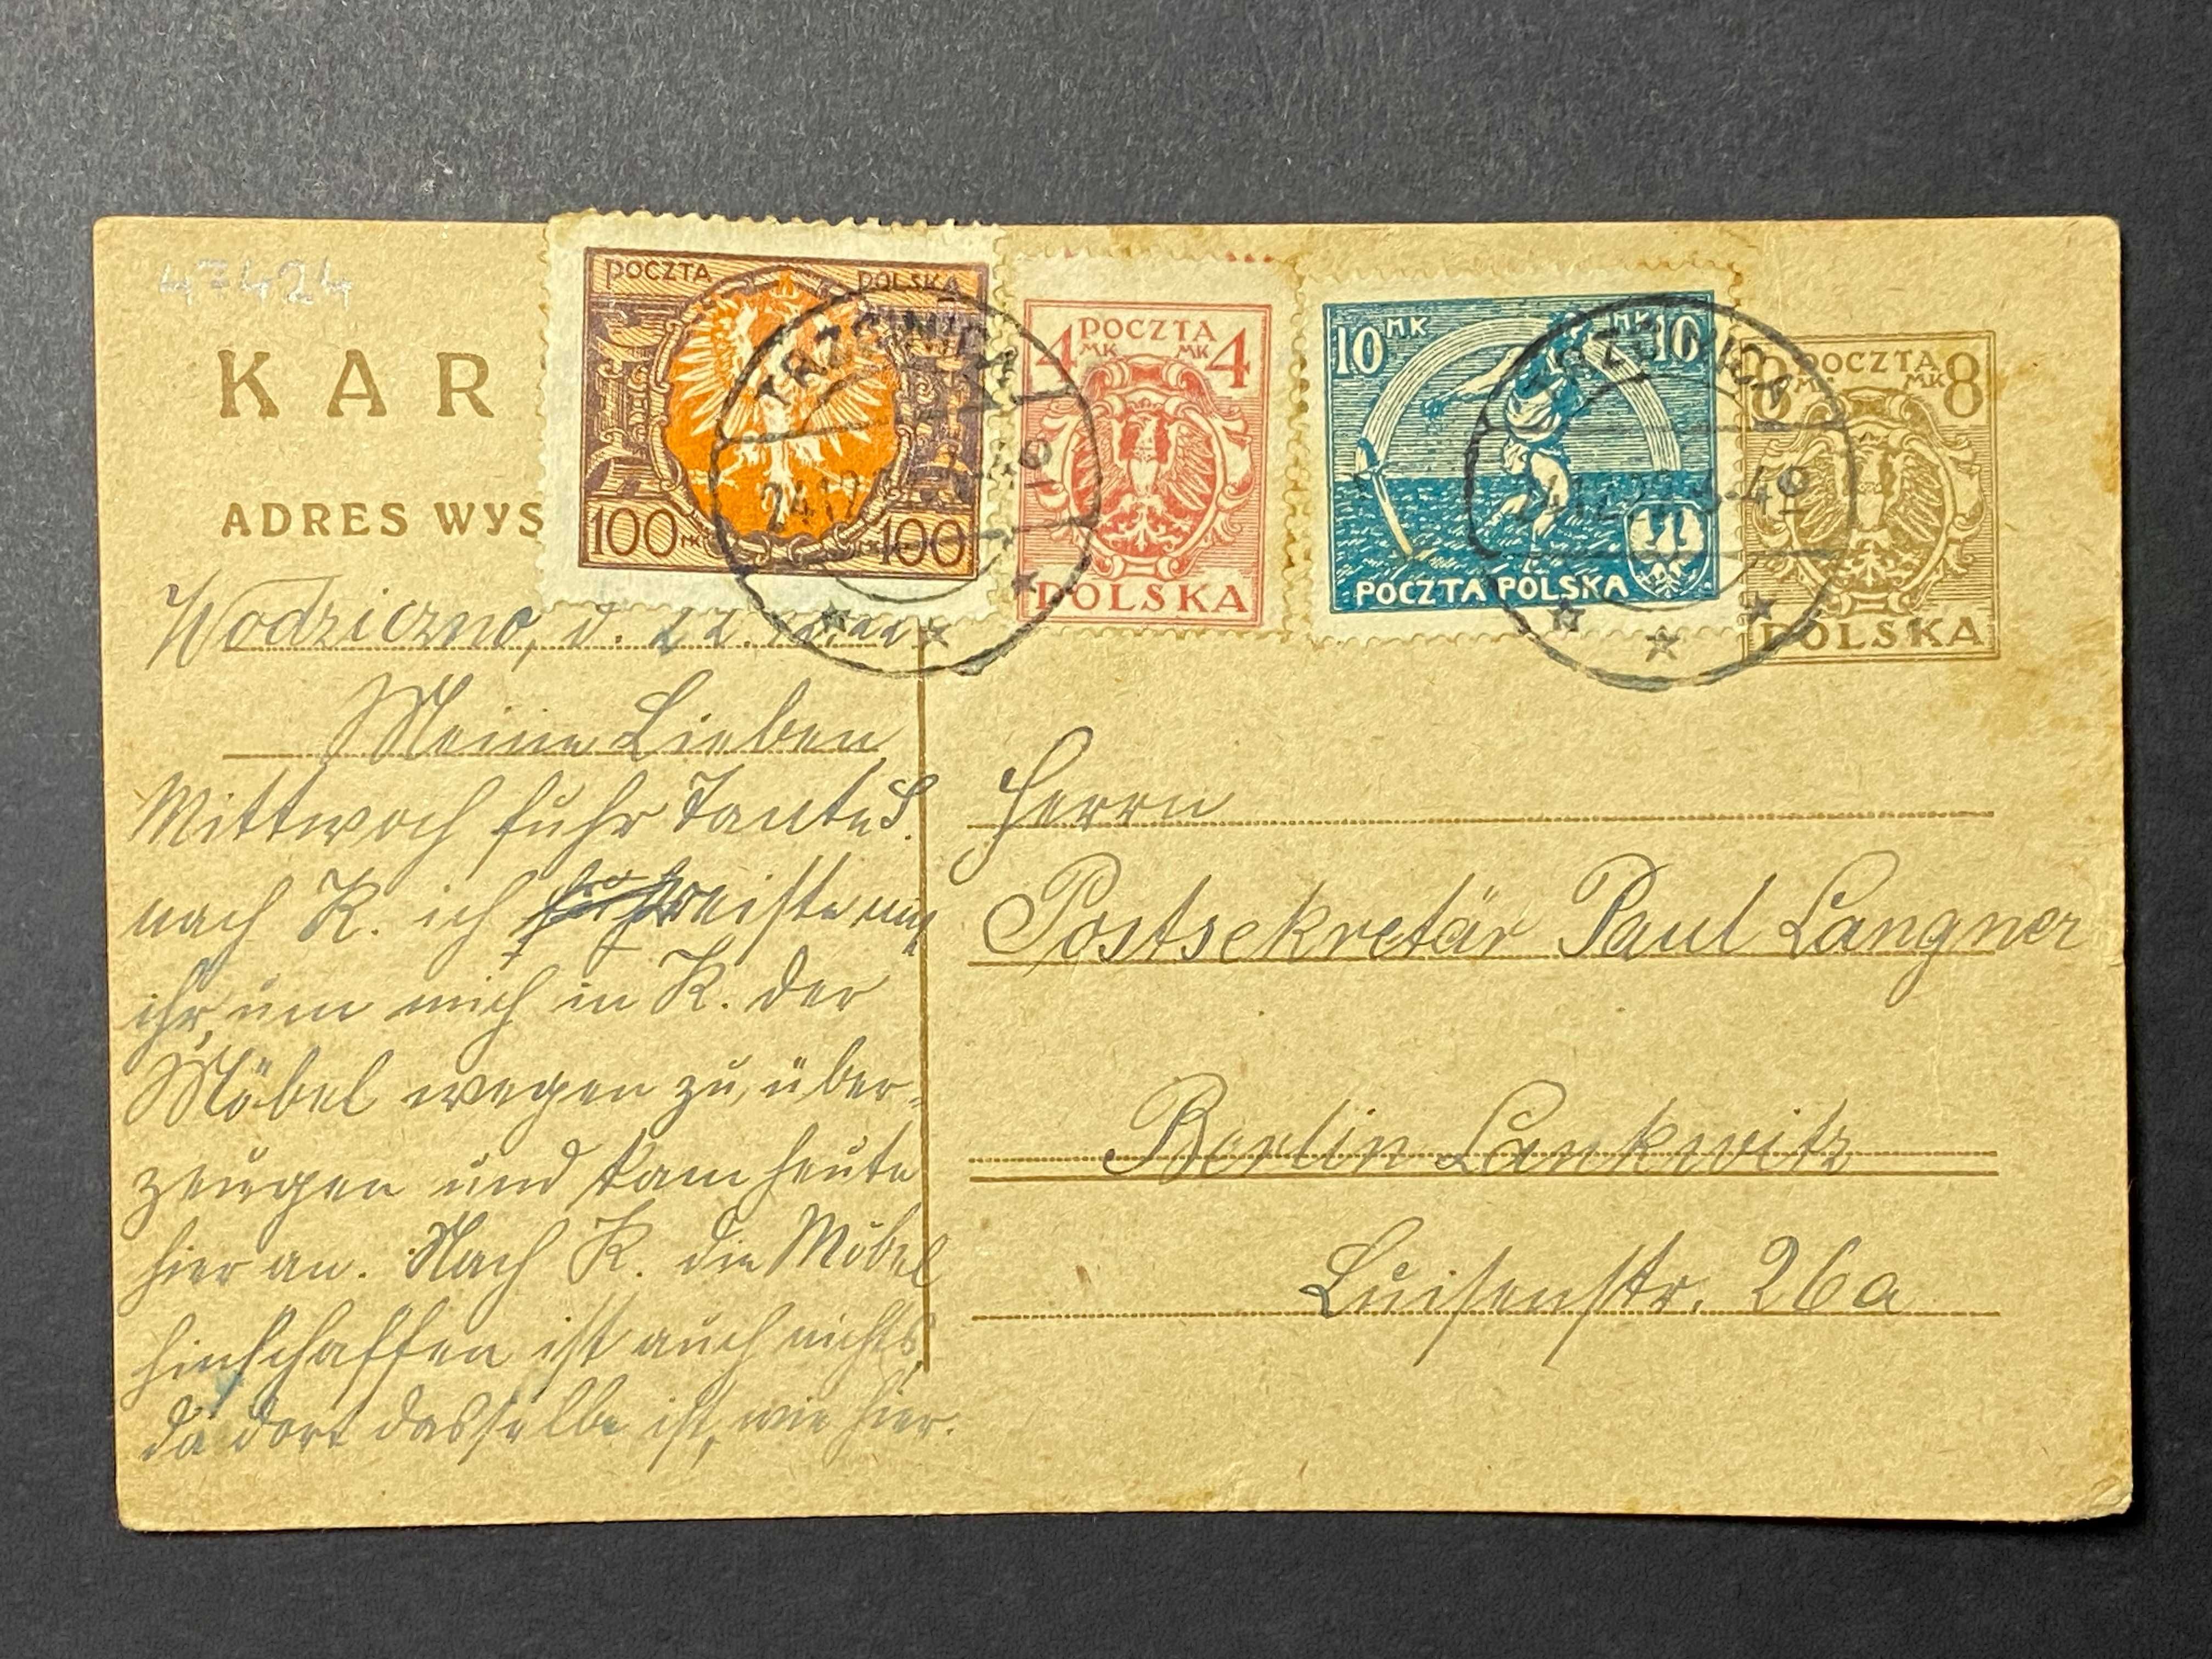 47424
KAR
ADRES WYS
POCZTA POLSKA
100 MK 100
4 POCZTA 4
MK MK
POLSKA
10 MK MK 10
POCZTA POLSKA
8 POCZTA 8
MK MK
POLSKA
TRZCINICA
24.12
TRZCINICA
24.12.22
Wodziczno, d. 22.
Meine Lieben
Mittwoch fuhr Tante S.
nach K. ich reiste mit
ihr, um mich in K. der
Möbel wegen zu über-
zeugen und kam heute
hier an. Nach K. die Möbel
hinschaffen ist auch nichts,
da dort dasselbe ist, wie hier.
Herrn
Postsekretär Paul Langner
Berlin Lankwitz
Luisenstr. 26a